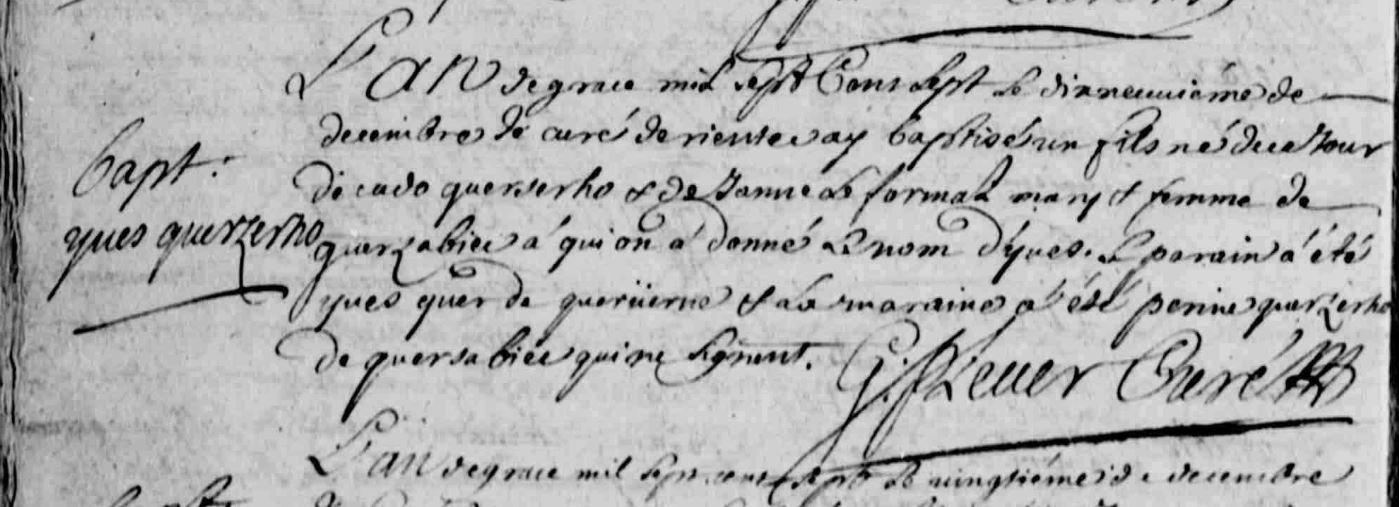 L'an de grace mil sept Cent sept le dixneuvième de
decembre le curé de riente ay baptisé un fils né de ce Jour
bapt:
de cado querserho & de Janne le formal mary & femme de
yues querzerho
querzabiec à qui on à donné le nom d'yues. le parain à été
yues quer de et la maraine à été perine querzerho
de quersabiec qui ne signent. G: Curé
L'an de grace mil sept cent sept le vingtiéme de decembre